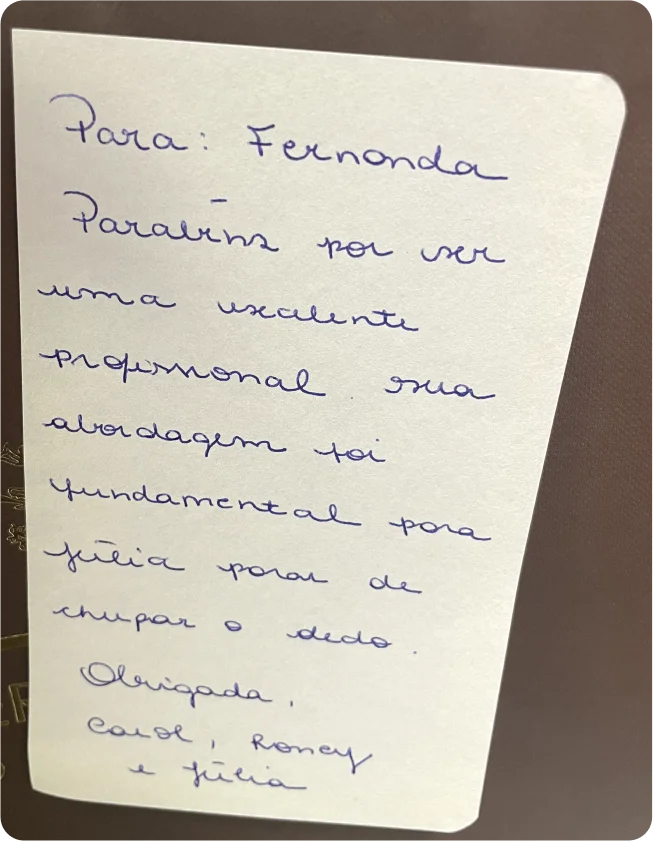 Para: Fernanda
Parabéns por ser
uma excelente
profissional sua
abordagem foi
fundamental para
Júlia parar de
chupar o dedo.
Obrigada,
Carol, Roney
e Júlia